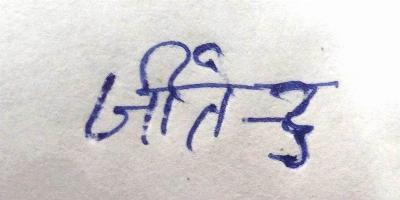 जीतेन्द्र